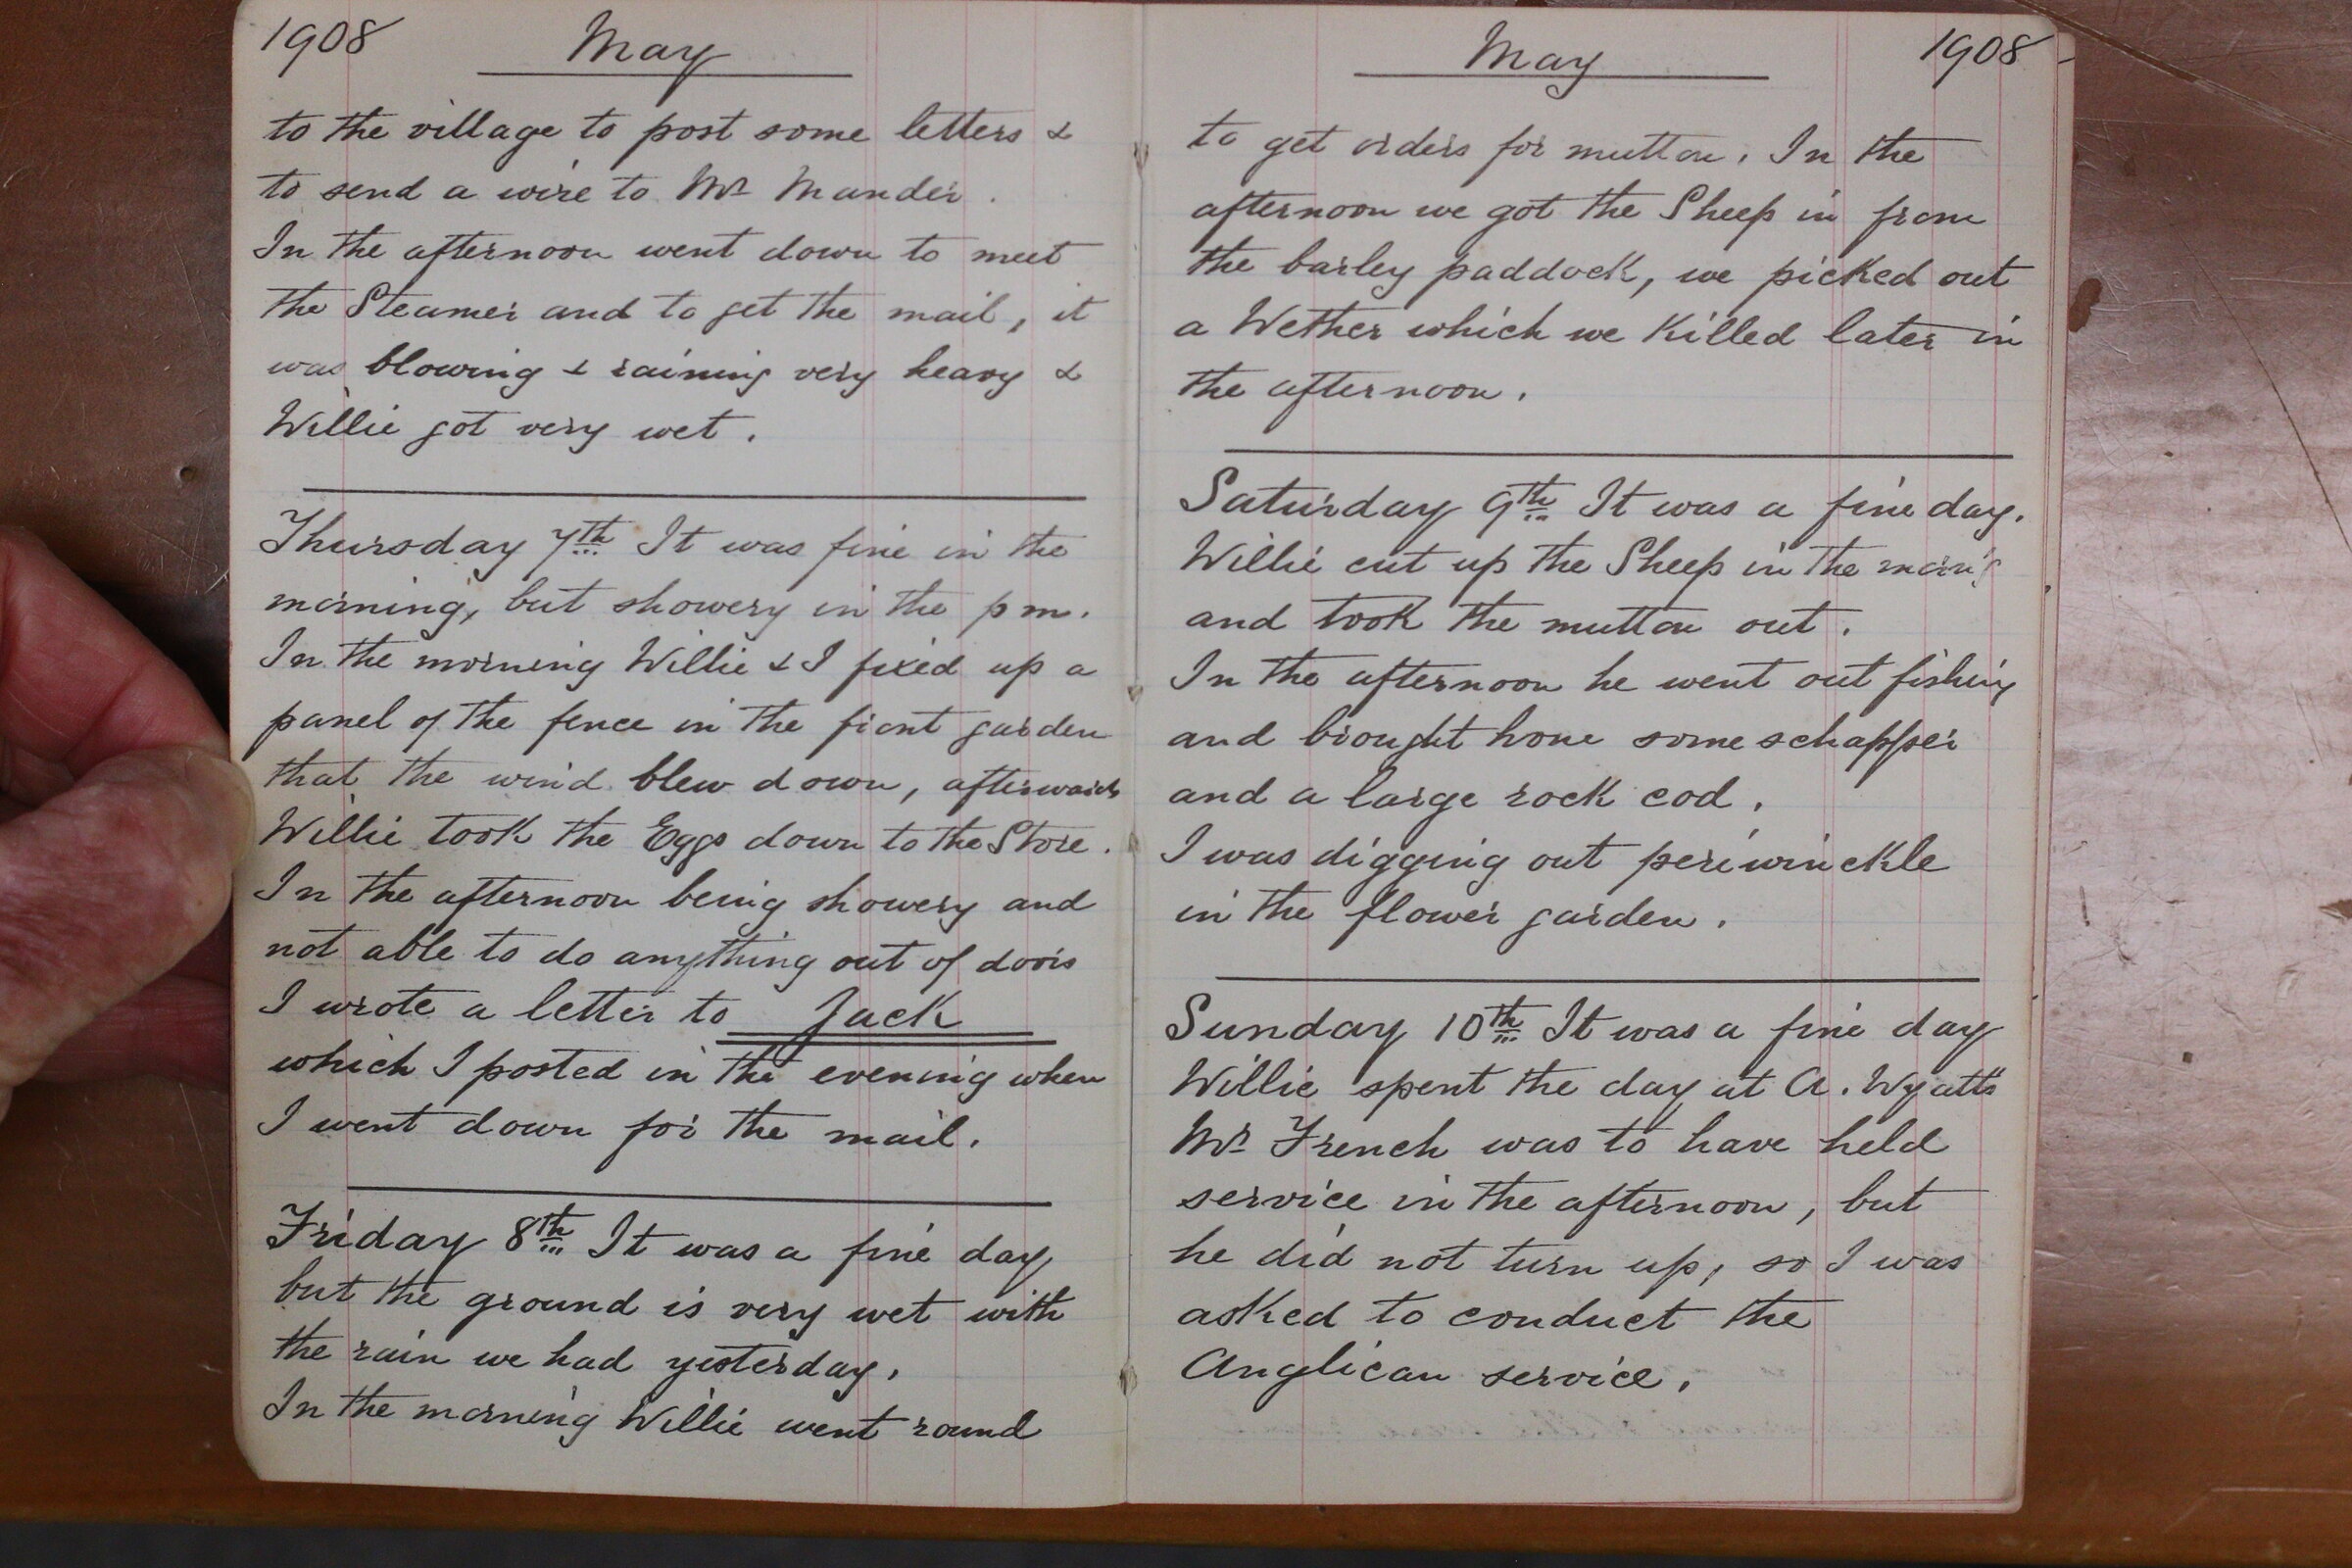 1908 May
to the village to post some letters &
to send a wire to Mr Mander.
In the afternoon went down to meet
the Steamer and to get the mail, it
was blowing & raining very heavy &
Willie got very wet.
Thursday 7th It was fine in the
morning, but showery in the pm.
In the morning Willie & I fixed up a
panel of the fence in the front garden
that the wind blew down, afterwards
Willie took the Eggs down to the Store.
In the afternoon being showery and
not able to do anything out of doors
I wrote a letter to Jack
which I posted in the evening when
I went down for the mail.
Friday 8th It was a fine day
but the ground is very wet with
the rain we had yesterday.
In the morning Willie went round
May 1908
to get orders for mutton. In the
afternoon we got the Sheep in from
the barley paddock, we picked out
a Wether which we Killed later in
the afternoon.
Saturday 9th It was a fine day.
Willie cut up the Sheep in the morn'g
and took the mutton out.
In the afternoon he went out fishing
and brought home some schapper
and a large rock cod.
I was digging out periwinckle
in the flower garden.
Sunday 10th It was a fine day
Willie spent the day at A. Wyatts
Mr French was to have held
service in the afternoon, but
he did not turn up, so I was
asked to conduct the
Anglican service.